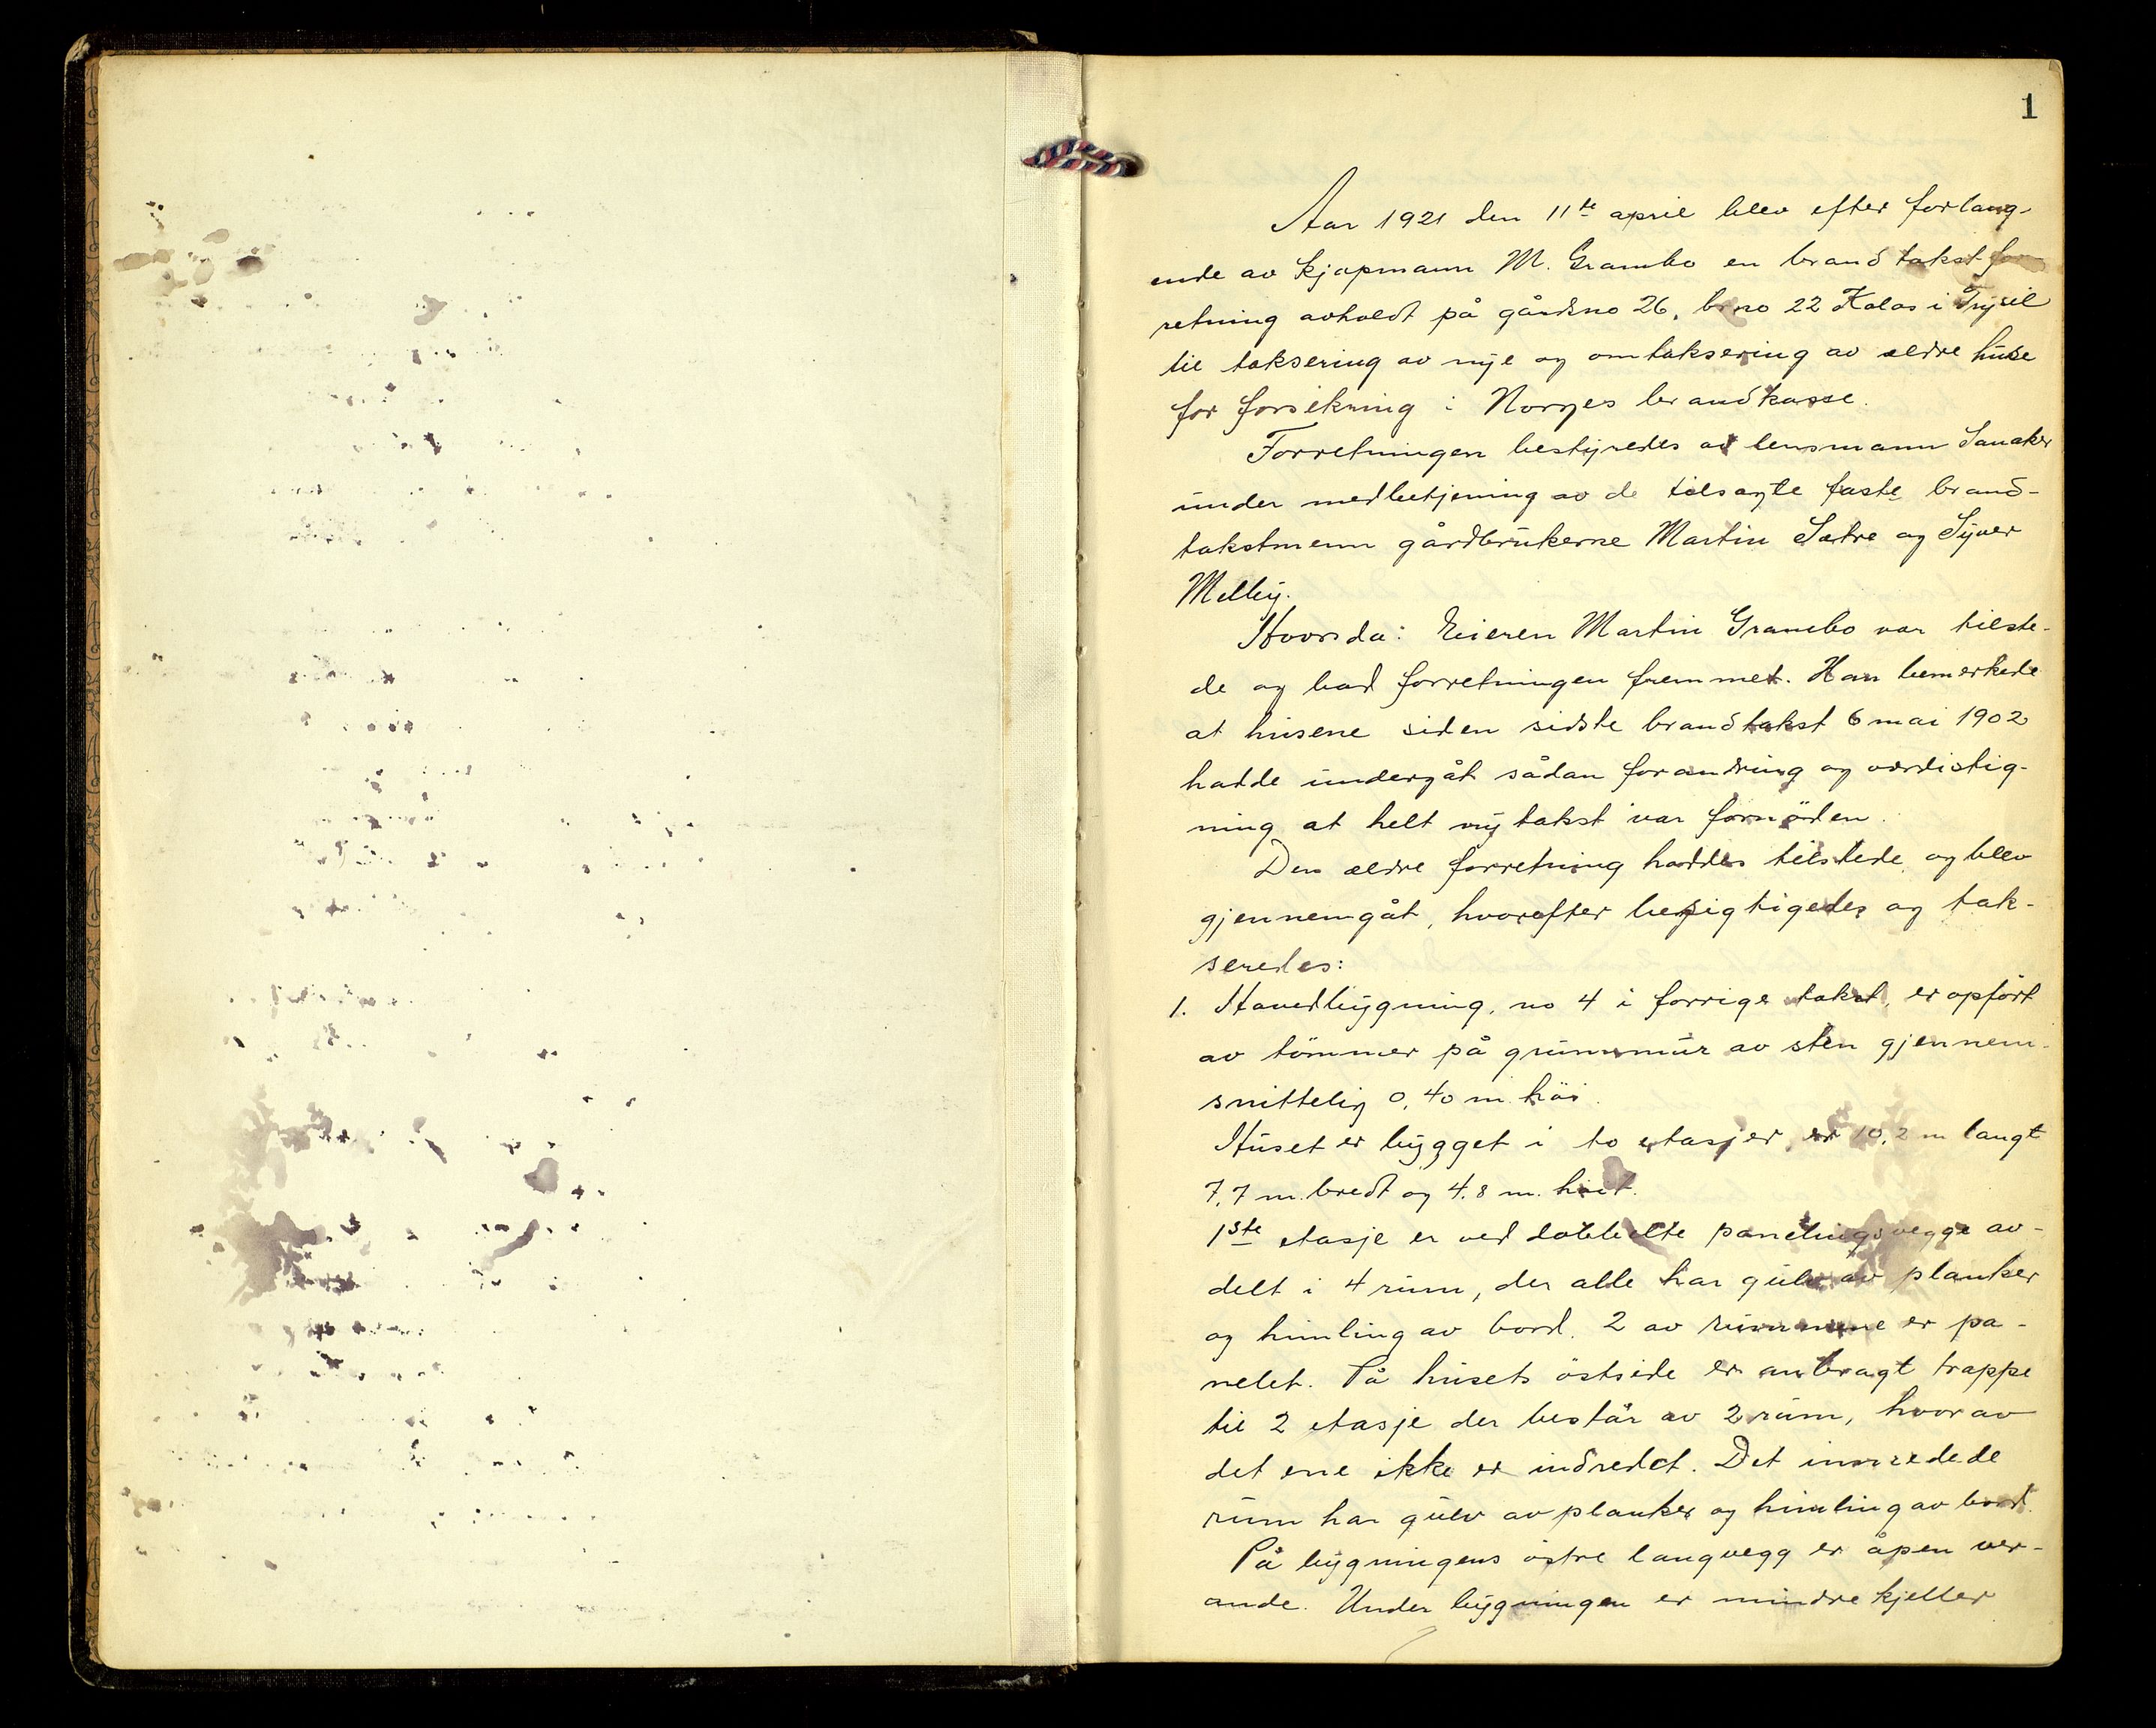 1
Aar 1921 den 11te april blev efter forlang-
ende av kjøpmann M. Grambo en brandtakstfor
retning avholdt på gårdsno 26, brno 22 Kolos i Trysil
til taksering av nye og omtaksering av ældre huse
for forsikring i Norges brandkasse.
Forretningen bestyredes av lensmann Sanaker
under medbetjening av de tilsagte faste brand-
takstmenn gårdbrukerne Martin Sætre og Syver
Melby.
Hvorda: Eieren Martin Grambo var tilste-
de og bad forretningen fremmet. Han bemerkede
at husene siden sidste brandtakst 6 mai 1902
hadde undergåt sådan forandring og værdistig-
ning at helt ny takst var fornöden.
Den ældre forretning haddes tilstede og blev
gjennemgåt, hvorefter besigtigedes og tak-
seredes:
1. Hovedbygning, no 4 i forrige takst, er opfört
av tömmer på grunnmur av sten gjennem-
snittelig 0,40 m. höi.
Huset er bygget i to etasjer, er 10,2 m langt
7,7 m. bredt og 4.8 m. höit.
1ste etasje er ved dobbelte panelingsvegge av-
delt i 4 rum, der alle har gulv av planker
og himling av bord. 2 av rummene er pa-
nelet. På husets östside er anbragt trappe
til 2 etasje der består av 2 rum, hvorav
det ene ikke er indredet. Det innredede
rum har gulv av planker og himling av bord.
På bygningens östre langvegg er åpen ver-
ande. Under bygningen er mindre kjeller